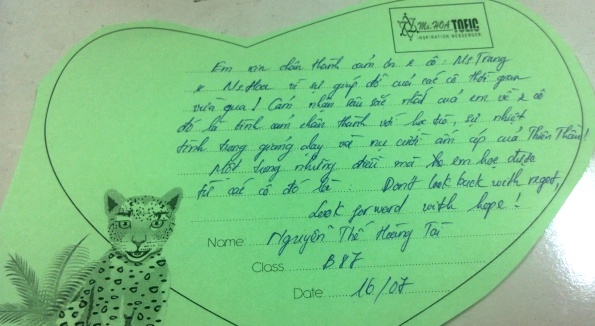 Ms. HOA TOEIC
INSPIRATION MESSENGER
Em xin chân thành cảm ơn 2 cô: Ms. Trang
& Ms. Hoa vì sự giúp đỡ của các cô thời gian
vừa qua! Cảm nhận sâu sắc nhất của em về 2 cô
đó là tình cảm chân thành với học trò, sự nhiệt
tình trong giảng dạy và nụ cười ấm áp của Thiên Thần!
Một trong những điều mà em học được
từ các cô đó là: Don't look back with regret,
Look forward with hope!
Name Nguyễn Thế Hoàng Tài
Class B87
Date 16/07